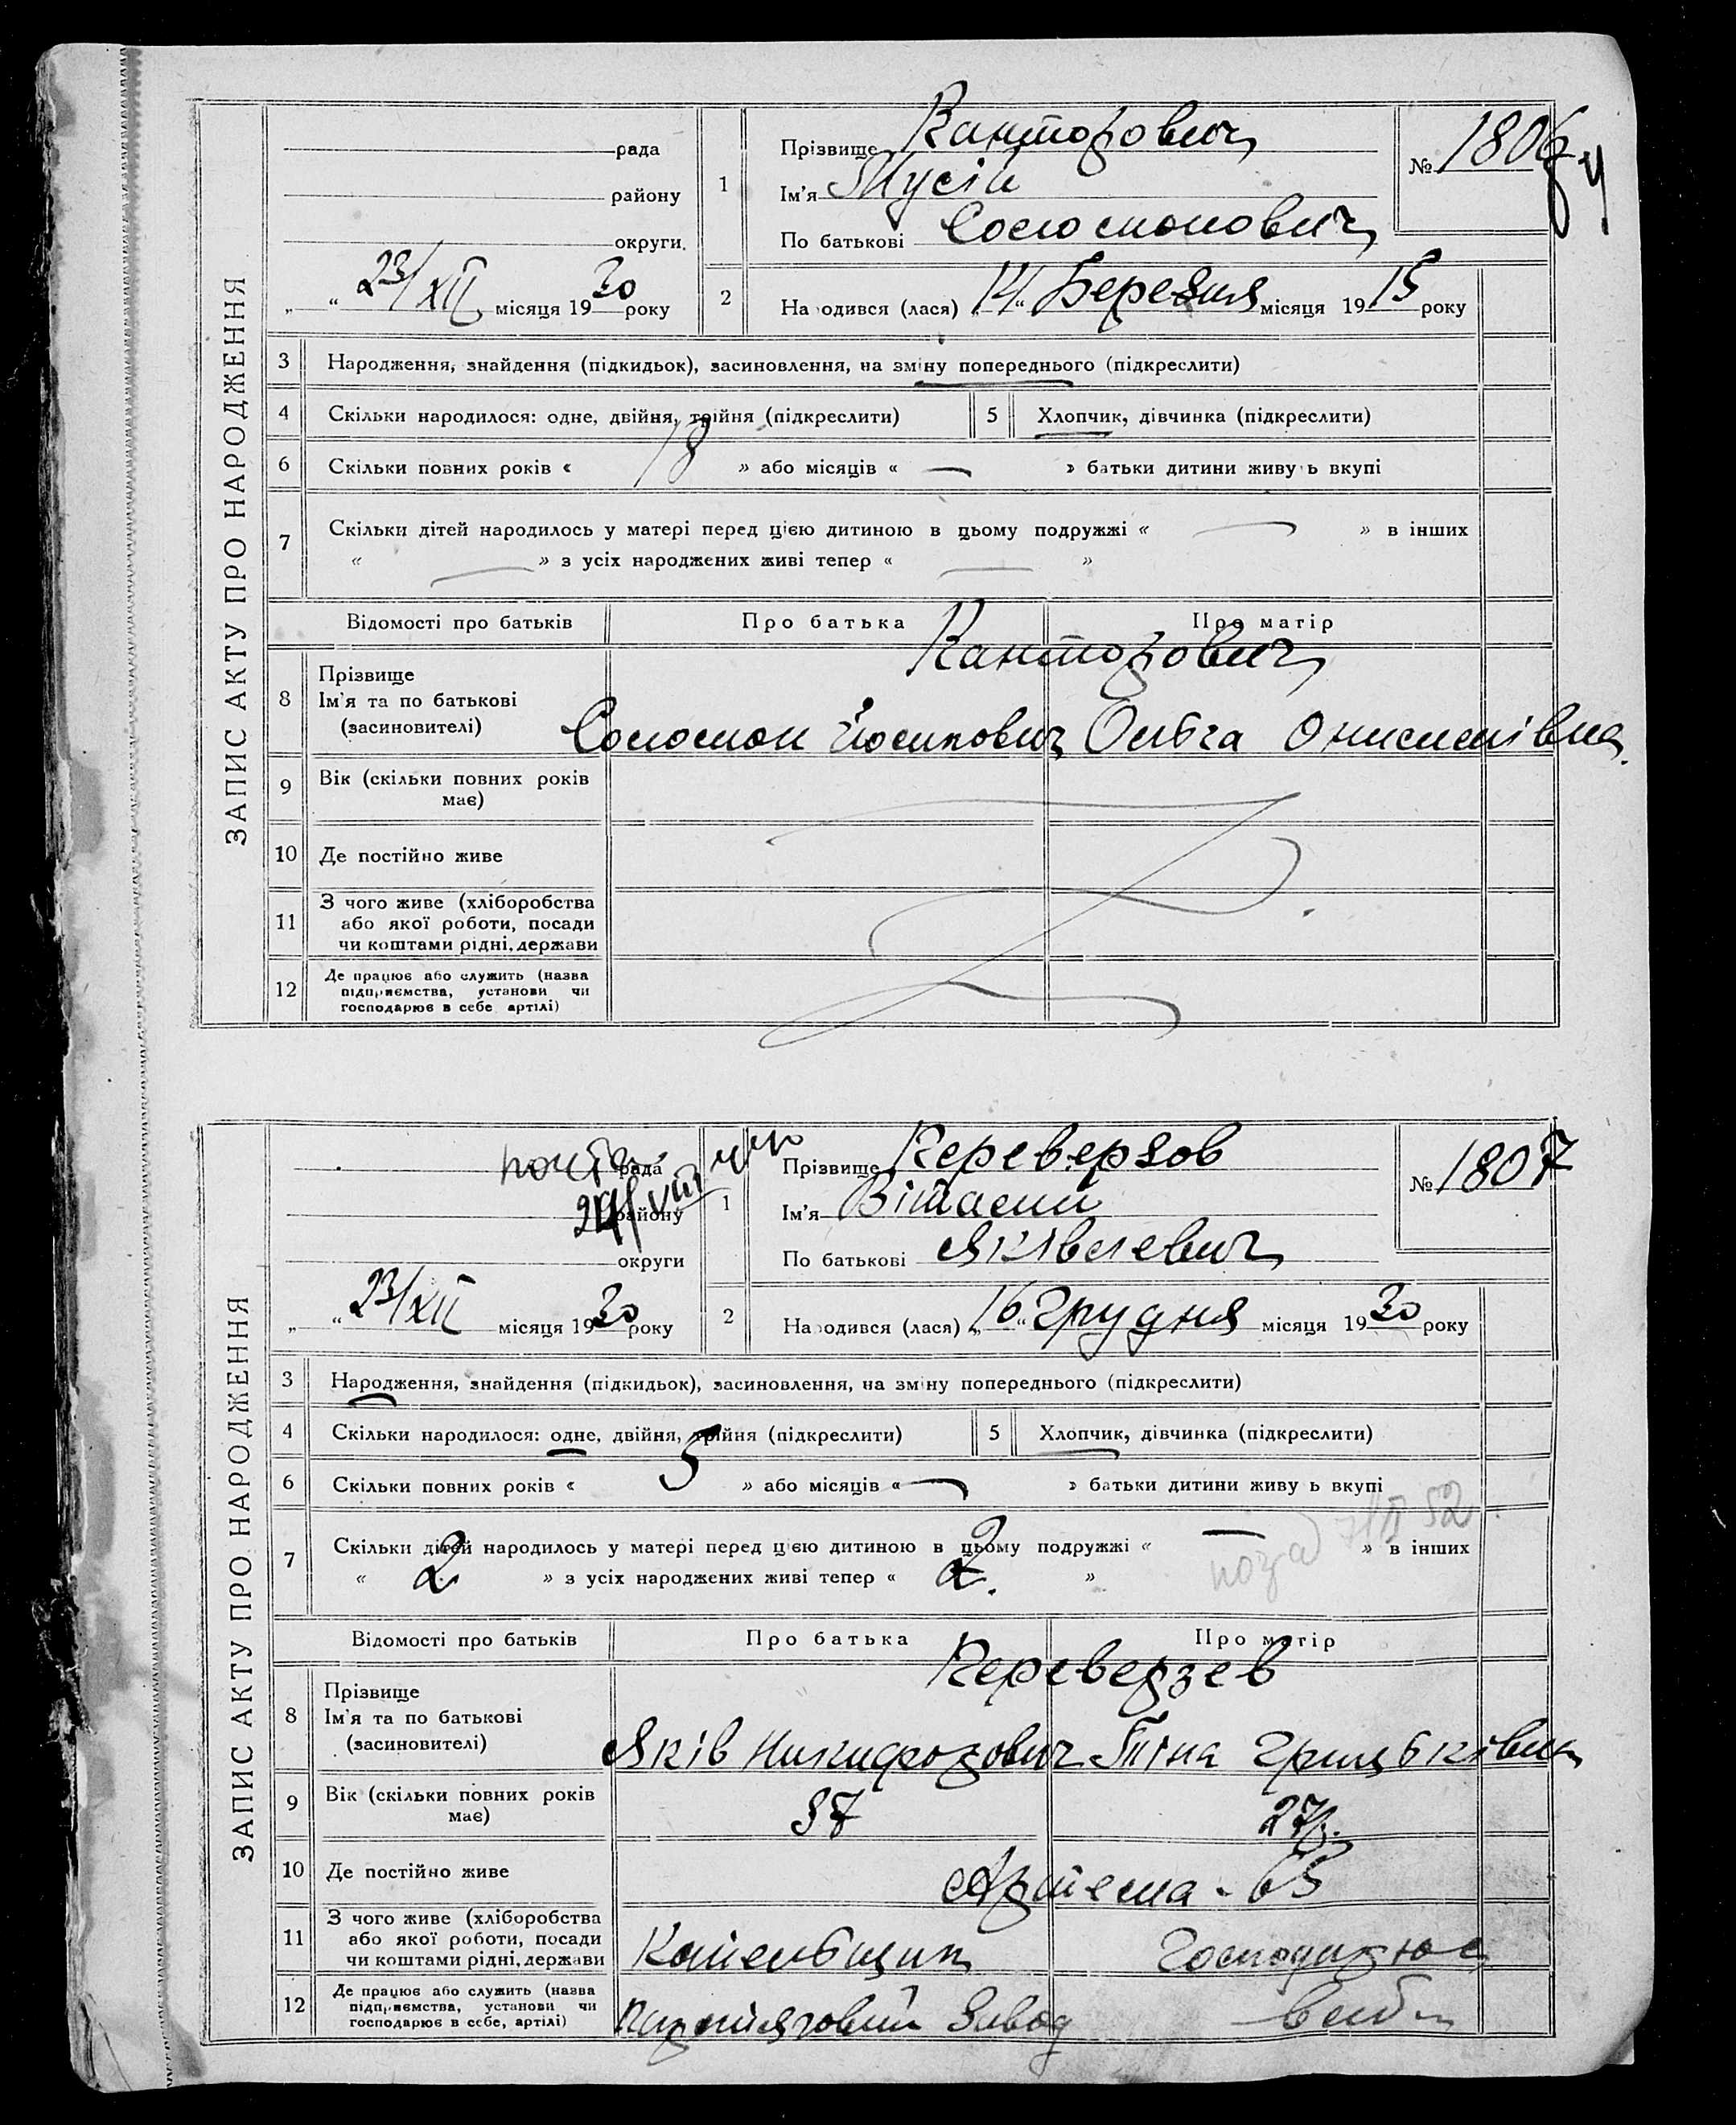 ЗАПИС АКТУ ПРО НАРОДЖЕННЯ
рада
району
округи.
„ “ 23/XII місяця 1930 року
1
Прізвище Канторович
Ім'я Мусій
По батькові Соломонович
№ 1806
2
На одився (лася) „14“ Березня місяця 1915 року
3 Народження, знайдення (підкидьок), засиновлення, на зміну попереднього (підкреслити)
4 Скільки народилося: одне, двійня, трійня (підкреслити) 5 Хлопчик, дівчинка (підкреслити)
6 Скільки повних років « 18 » або місяців « — » батьки дитини живу ь вкупі
7 Скільки дітей народилось у матері перед цією дитиною в цьому подружжі « — » в інших
« — » з усіх народжених живі тепер « — »
Відомості про батьків Про батька Про матір
Канторович
8 Прізвище
Ім'я та по батькові
(засиновителі)
Соломон Йосипович Ольга Онисимівна.
9 Вік (скільки повних років
має)
10 Де постійно живе
11 З чого живе (хліборобства
або якої роботи, посади
чи коштами рідні, держави
12 Де працює або служить (назва
підприємства, установи чи
господарює в себе артілі)
ЗАПИС АКТУ ПРО НАРОДЖЕННЯ
рада
району
округи
„ “ 23/XII місяця 1930 року
1
Прізвище Переверзов
Ім'я Віталий
По батькові Яківлевич
№ 1807
2
На одився (лася) „16“ Грудня місяця 1930 року
3 Народження, знайдення (підкидьок), засиновлення, на зміну попереднього (підкреслити)
4 Скільки народилося: одне, двійня, трійня (підкреслити) 5 Хлопчик, дівчинка (підкреслити)
6 Скільки повних років « 5 » або місяців « — » батьки дитини живу ь вкупі
7 Скільки дітей народилось у матері перед цією дитиною в цьому подружжі « — » в інших
« 2 » з усіх народжених живі тепер « 2. »
Відомості про батьків Про батька Про матір
Переверзев
8 Прізвище
Ім'я та по батькові
(засиновителі)
Яків Никифорович Тіна Грицьківна
9 Вік (скільки повних років
має)
37 27
10 Де постійно живе
Артема - 65
11 З чого живе (хліборобства
або якої роботи, посади
чи коштами рідні, держави
Котельщик Господарює
12 Де працює або служить (назва
підприємства, установи чи
господарює в себе, артілі)
Паротяговий Завод